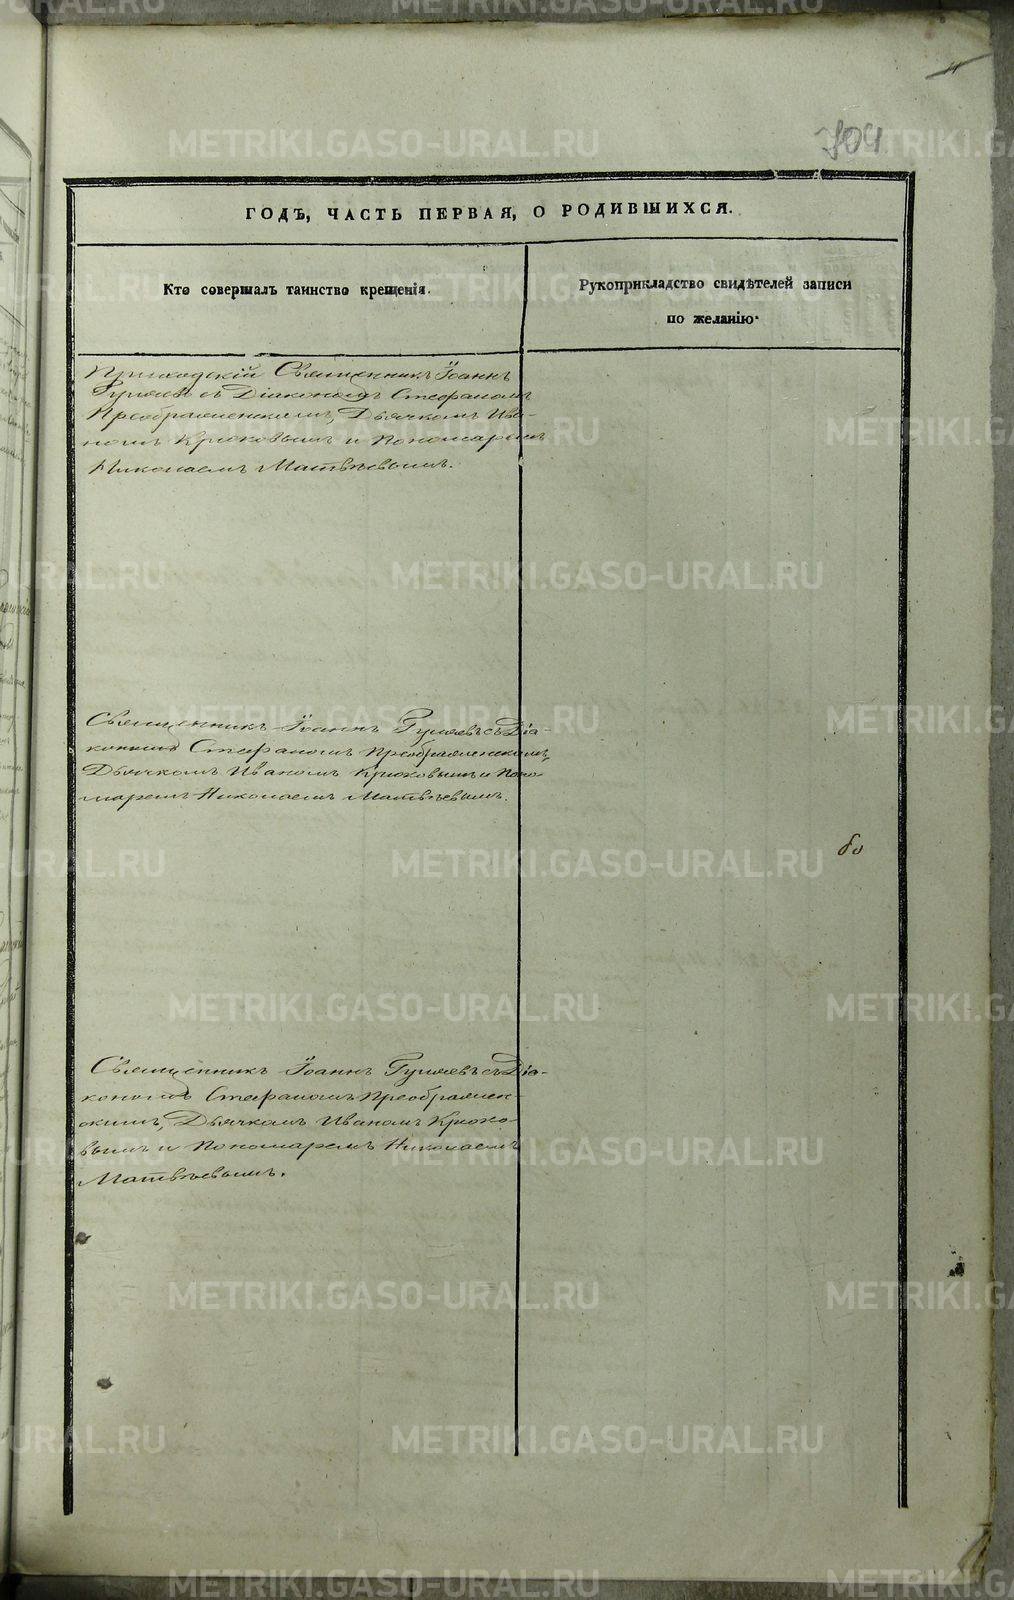 11
704
ГОДЪ, ЧАСТЬ ПЕРВАЯ, О РОДИВШИХСЯ.
Кто совершалъ таинство крещенія.
Рукоприкладство свидѣтелей записи
по желанію.
Приходскій Священникъ Іоаннъ
Гуляевъ съ Діакономъ Стефаномъ
Преображенскимъ, Дьячкомъ Ива-
номъ Крюковымъ и Пономаремъ
Николаемъ Матвѣевымъ.
Священникъ Іоаннъ Гуляевъ съ Діа-
кономъ Стефаномъ Преображенскимъ,
Дьячкомъ Иваномъ Крюковымъ и Поно-
маремъ Николаемъ Матвѣевымъ.
Священникъ Іоаннъ Гуляевъ съ Діа-
кономъ Стефаномъ Преображен-
скимъ, Дьячкомъ Иваномъ Крюко-
вымъ и Пономаремъ Николаемъ
Матвѣевымъ.
METRIKI.GASO-URAL.RU